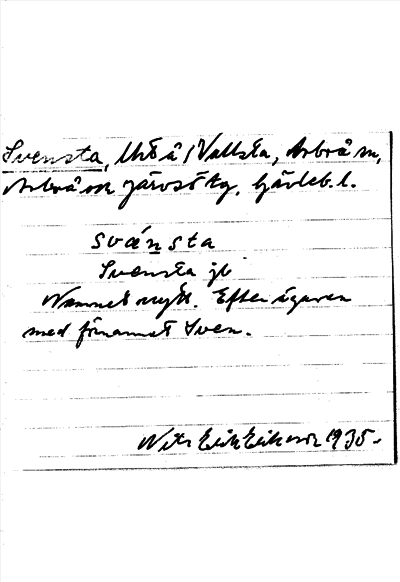 Svensta, thö å /Vallsta, Arbrå sn,
Arbrå och Järvsö tg, Gävleb. l.
svánsta
Svensta
Namnet nytt. Efter ägaren
med förnamnet Sven.
Nils Erik Eriksson 1935.